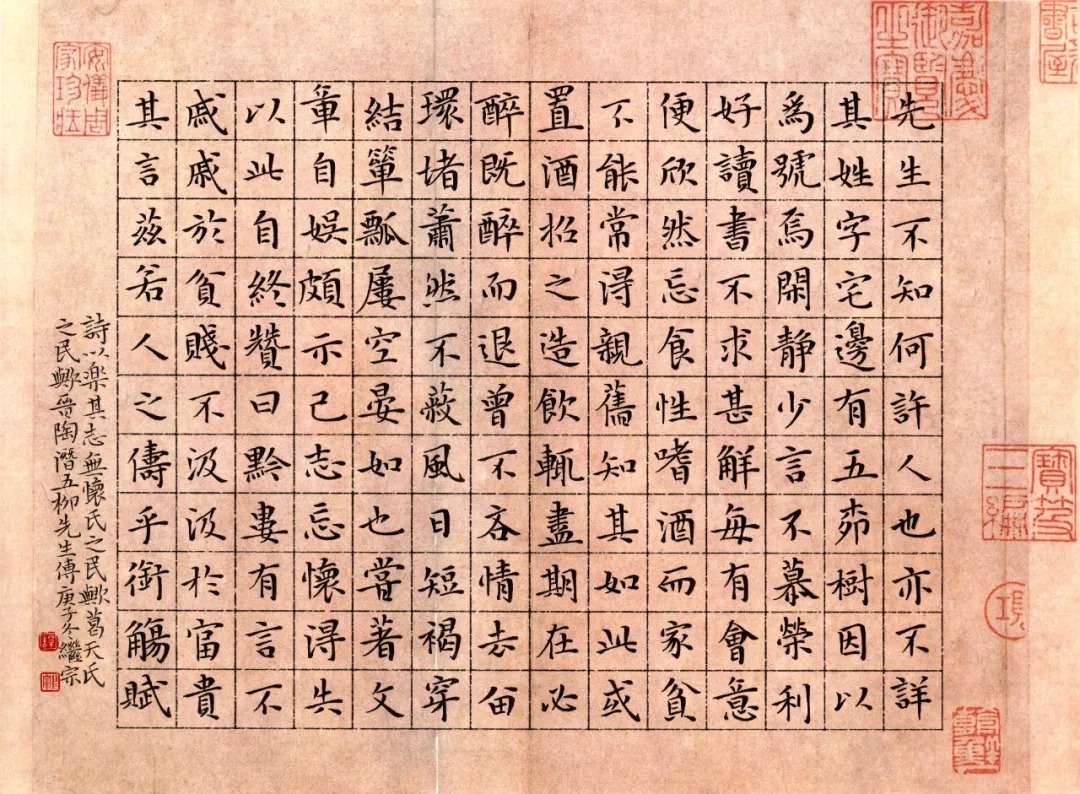 先生不知何許人也亦不詳
其姓字宅邊有五桺樹因以
爲號焉閑靜少言不慕榮利
好讀書不求甚解每有會意
便欣然忘食性嗜酒而家貧
不能常得親舊知其如此或
置酒招之造飲輒盡期在必
醉既醉而退曾不吝情去留
環堵蕭然不蔽風日短褐穿
結簞瓢屢空晏如也嘗著文
章自娛頗示己志忘懷得失
以此自終贊曰黔婁有言不
戚戚於貧賤不汲汲於富貴
其言茲若人之儔乎銜觴賦
詩以樂其志無懷氏之民歟葛天氏
之民歟晉陶潛五柳先生傳庚子冬繼宗
嘉慶
御覽
之寶
寶笈
三編
安儀周
家珍藏